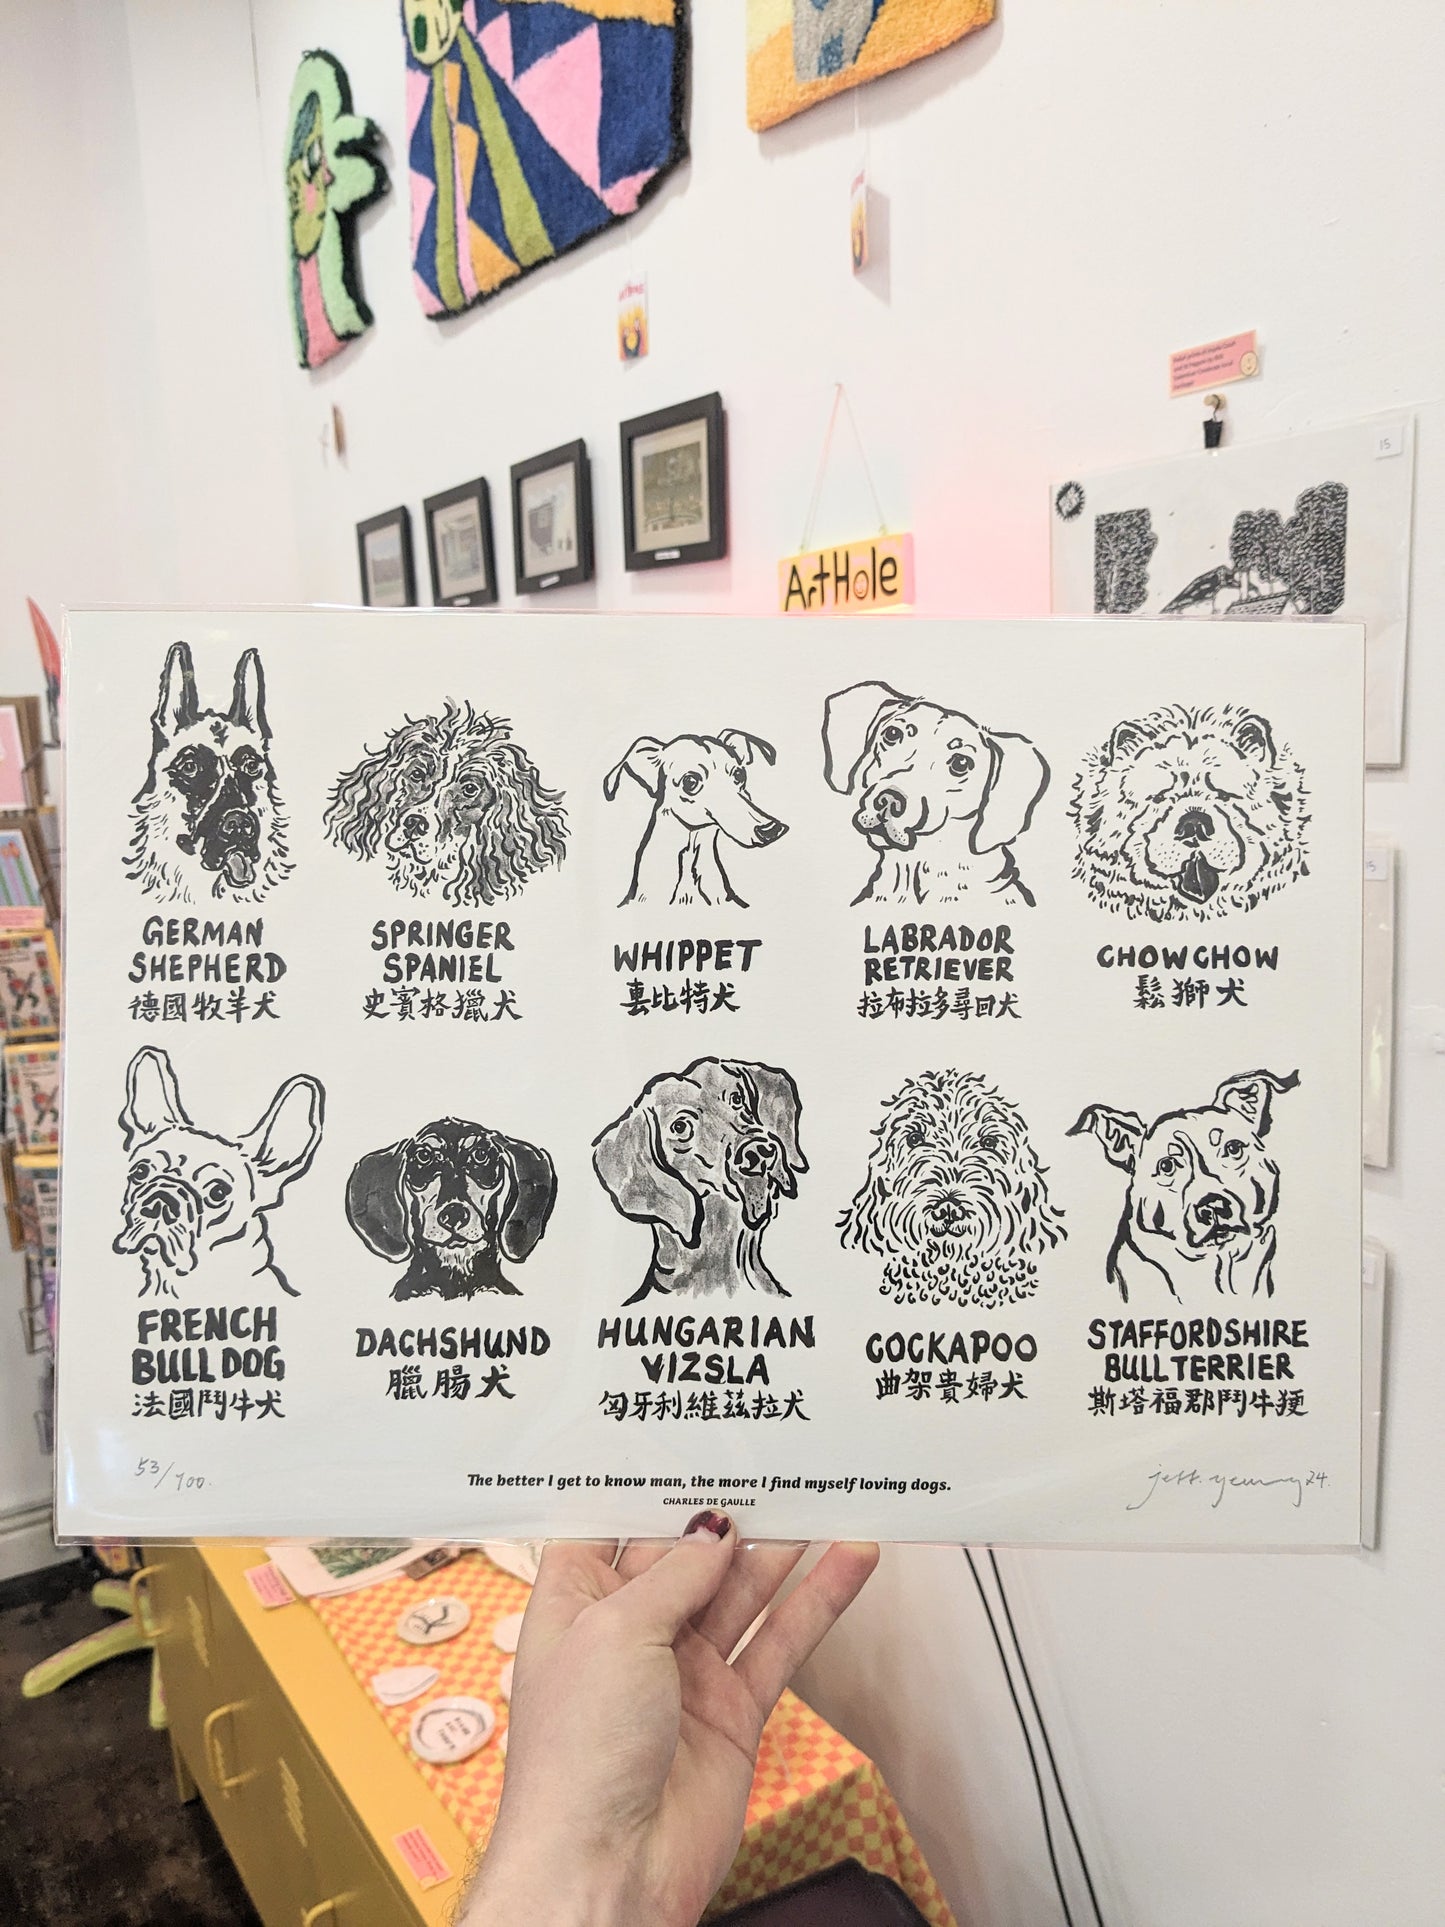 15
ArtHole
GERMAN
SHEPHERD
德國牧羊犬
SPRINGER
SPANIEL
史賓格獵犬
WHIPPET
惠比特犬
LABRADOR
RETRIEVER
拉布拉多尋回犬
CHOW CHOW
鬆獅犬
FRENCH
BULLDOG
法國鬥牛犬
DACHSHUND
臘腸犬
HUNGARIAN
VIZSLA
匈牙利維茲拉犬
COCKAPOO
曲架貴婦犬
STAFFORDSHIRE
BULL TERRIER
斯塔福郡鬥牛㹴
53/100.
The better I get to know man, the more I find myself loving dogs.
CHARLES DE GAULLE
jeff. yeung 24.